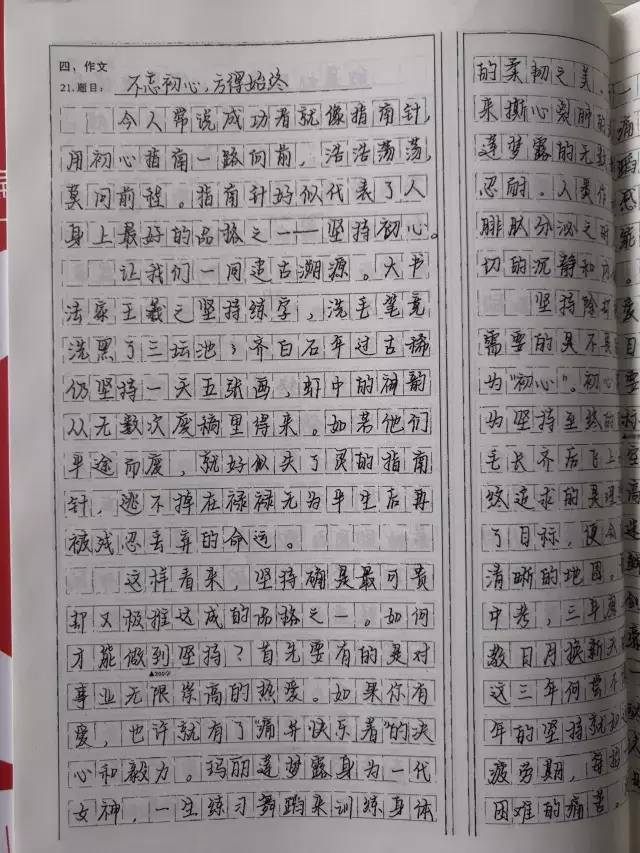 四、作文
21.题目：不忘初心，方得始终
今人常说成功者就像指南针，
用初心指南一路向前，浩浩荡荡，
莫问前程。指南针好似代表了人
身上最好的品格之一——坚持初心。
让我们一同追古溯源。大书
法家王羲之坚持练字，洗毛笔竟
洗黑了三坛池；齐白石年过古稀
仍坚持一天五张画，虾中的神韵
从无数次废稿里得来。如若他们
半途而废，就好似失了灵的指南
针，逃不掉在碌碌无为半生后再
被残忍丢弃的命运。
这样看来，坚持确是最可贵
却又极难达成的品格之一。如何
才能做到坚持？首先要有的是对
▲200字
事业无限崇高的热爱。如果你有
爱，也许就有了“痛并快乐着”的决
心和毅力。玛丽莲梦露身为一代
女神，一生练习舞蹈来训练身体
的柔韧之美。
来撕心裂肺
莲梦露的无
忍耐。人是
腓肽分泌之时
切的沉静和
坚持除
需要的是不
为“初心”。初心
为坚持至终的
毛长齐后飞上
终追求的是
了目标，便会
清晰的地图。
中考，三年
数日月换新天
这三年何尝不
年的坚持就
疲劳期，每
困难的痛苦。